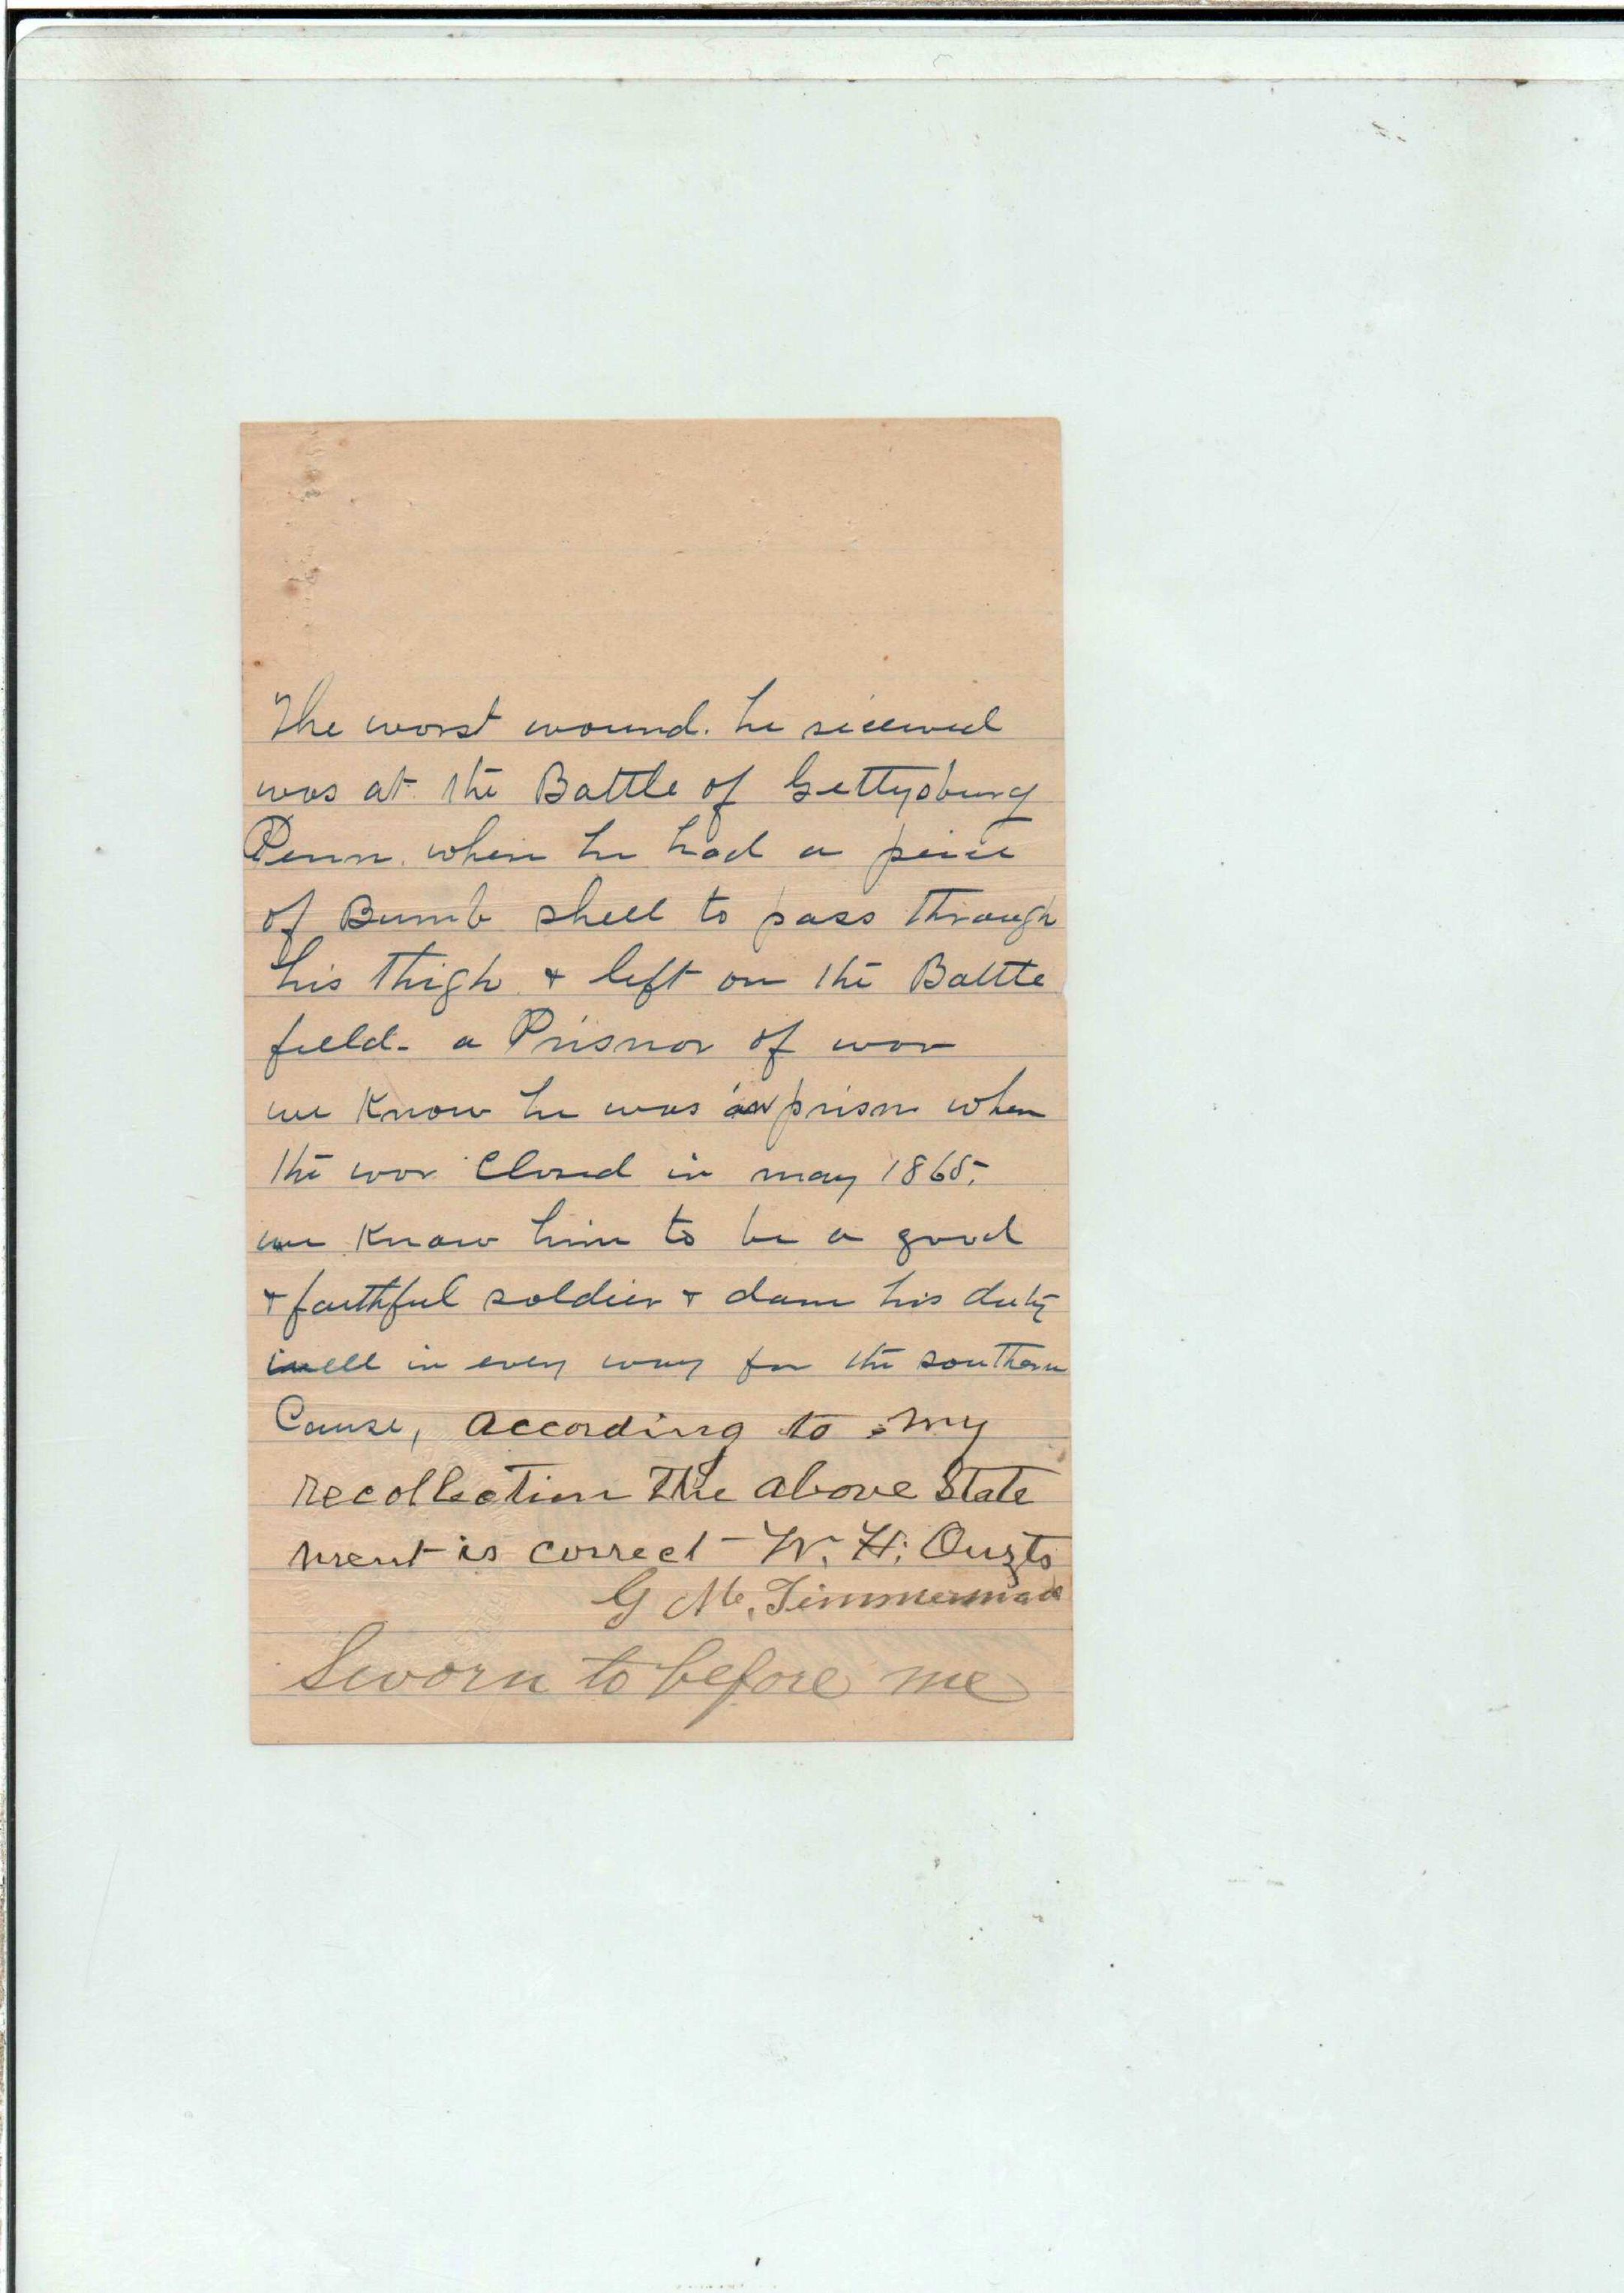 The worst wound. he recewed
was at the Battle of Gettysburg
Penn. when he had a peice
of Bumb shell to pass through
his thigh & left on the Battle
field- a Prisnor of war
we Know he was in prison when
the war Closed in may 1865.
we Know him to be a good
& faithful soldier & done his duty
well in every way for the southern
Cause, According to my
recollection The above State
ment is correct - W. H. Ouzts
G M. Timmerman
Sworn to before me